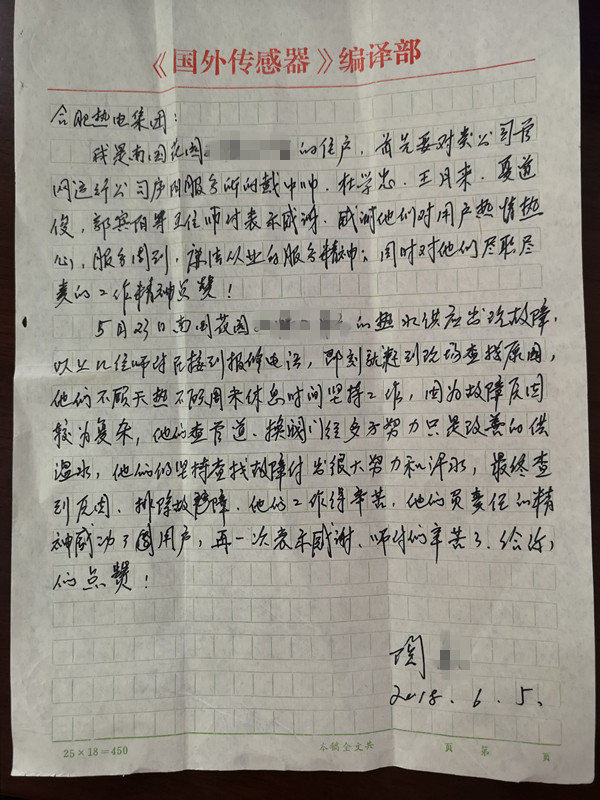 《国外传感器》编译部
合肥热电集团：
我是南国花园的住户，首先要对贵公司管
网运行公司庐阳服务所的戴中帅、杜学忠、王月来、夏道
俊，郭宾阳等五位师付表示感谢。感谢他们对用户热情热
心，服务周到，廉洁从业的服务精神；同时对他们尽职尽
责的工作精神点赞！
5月23日南国花园的热水供应出现故障，
以上几位师付在接到报修电话，即刻就赶到现场查找原因，
他们不顾天热不顾周末休息时间坚持工作，因为故障原因
较为复杂，他们查管道、换阀门经多方努力只是改善的供
温水，他们仍坚持查找故障付出很大努力和汗水，最终查
到原因、排除故障。他们工作得辛苦，他们负责任的精
神感动了用户，再一次表示感谢、师付们辛苦了、给你
们点赞！
陶
2018.6.5.
25×18=450
本稿全文共 頁 第 頁